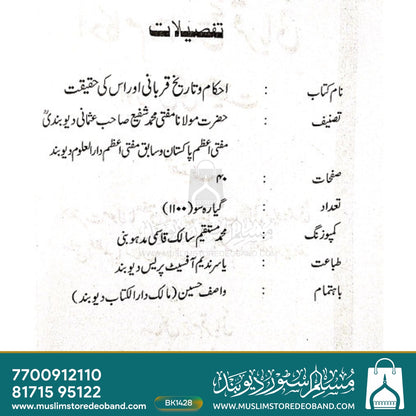 تفصیلات
نام کتاب : احکام و تاریخ قربانی اور اس کی حقیقت
تصنیف : حضرت مولانا مفتی محمد شفیع صاحب عثمانی دیوبندیؒ
مفتی اعظم پاکستان و سابق مفتی اعظم دارالعلوم دیوبند
صفحات : ۴۰
تعداد : گیارہ سو (۱۱۰۰)
کمپوزنگ : محمد مستقیم سالک قاسمی مدہوبنی
طباعت : یاسر ندیم آفسیٹ پریس دیوبند
باہتمام : واصف حسین (مالک دارالکتاب دیوبند)
7700912110
81715 95122
www.muslimstoredeoband.com
BK1428
مسلم سٹور دیوبند
WWW.MUSLIMSTOREDEOBAND.COM